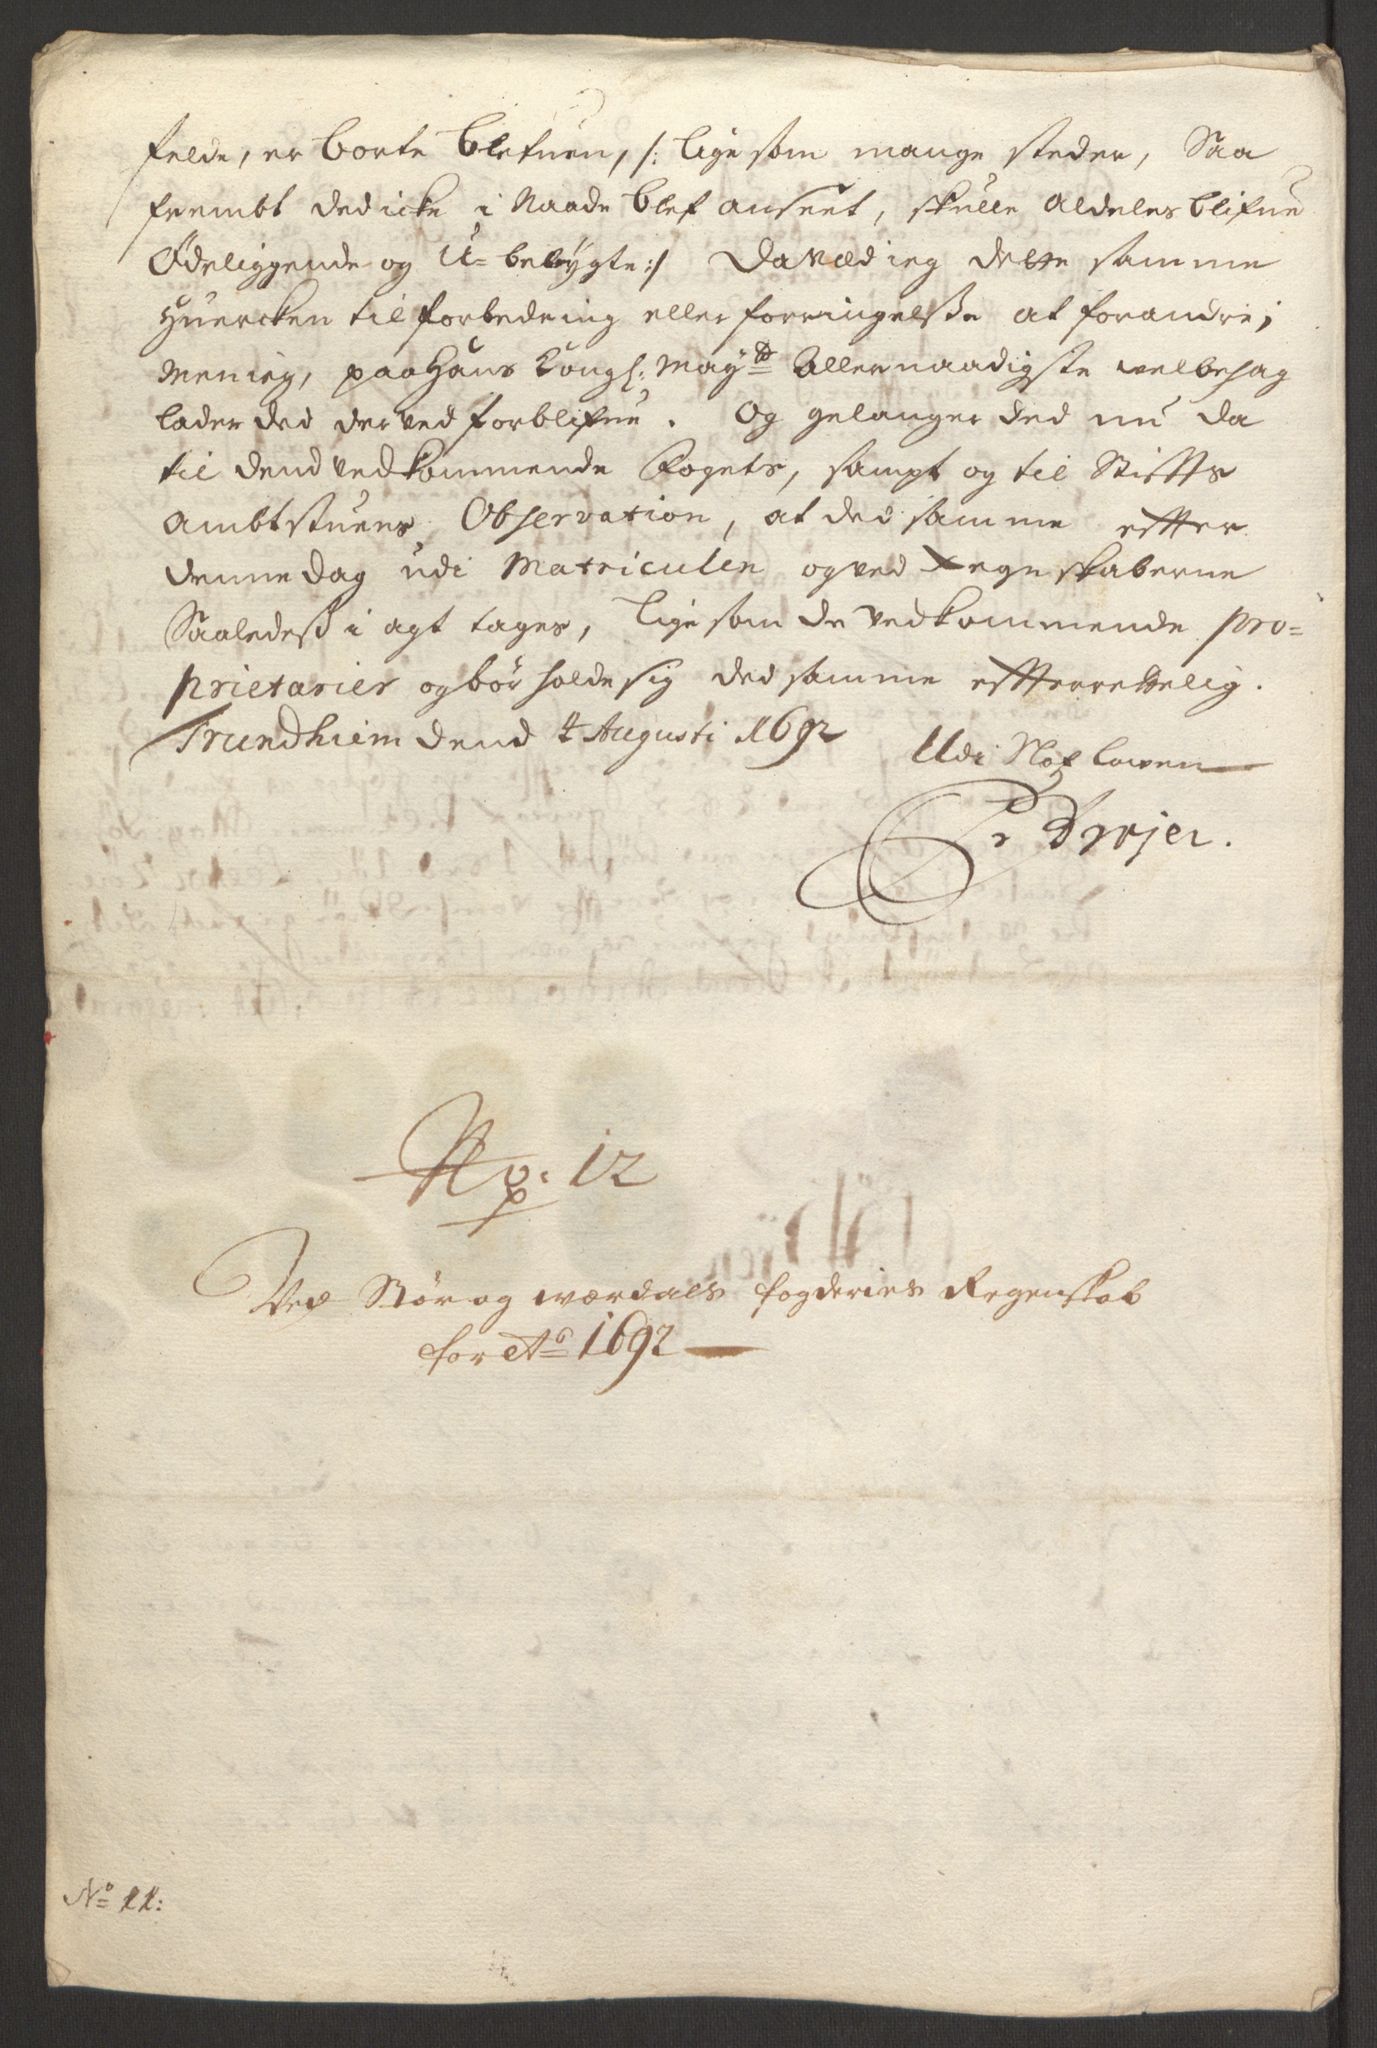 felde, er borte blefuen, /: lige som mange steder, Saa
frembt ded icke i Naade blef anseet, skulle aldeles blifue
Ødeliggende og U-bebygte :/ Da Ved ieg dette samme
huercken til forbedring eller forringelsse at forandre;
Men ieg, paa Hans Kongl: May:tz Allernaadigste welbehag
lader ded derved forblifue. Og gelanger ded nu da
til dend vedkommende Fogets, sampt og til Stiffts
Ambtstuens Observation, at ded samme effter
denne dag udi Matriculen og ved Regnskaberne
Saaledess i agt tages, lige som de vedkommende pro=
prietarier og bør holde sig ded samme effterrettelig.
Trundhiem dend 4 Augusti 1692
Udi
Dreyer.
No: 12
Ved Stør og Werdals fogderies Regenskab
for Ao 1692
No 11: